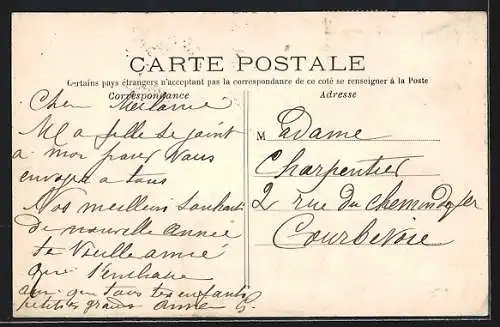 CARTE POSTALE
Certains pays étrangers n'acceptent pas la correspondance de ce coté se renseigner à la Poste
Correspondance
Chère Mélanie
Ma fille se joint
a moi pour vous
envoyer a tous
Nos meilleurs souhaits
de nouvelle année
ta Vieille amie
qui t'embrasse
ainsi que tous tes enfants
petits et grands
Adresse
Madame
Charpentier
2 rue du chemin de fer
Courbevoie